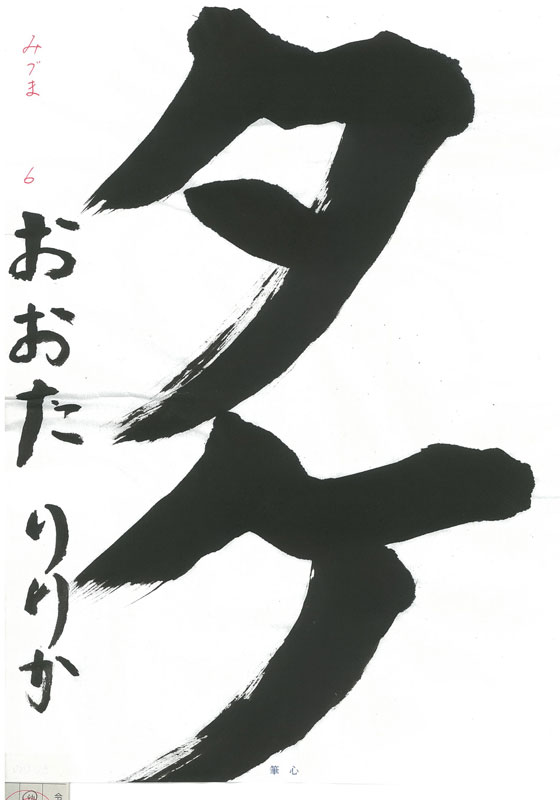 タケ
みづま 6
おおた りりか
筆心